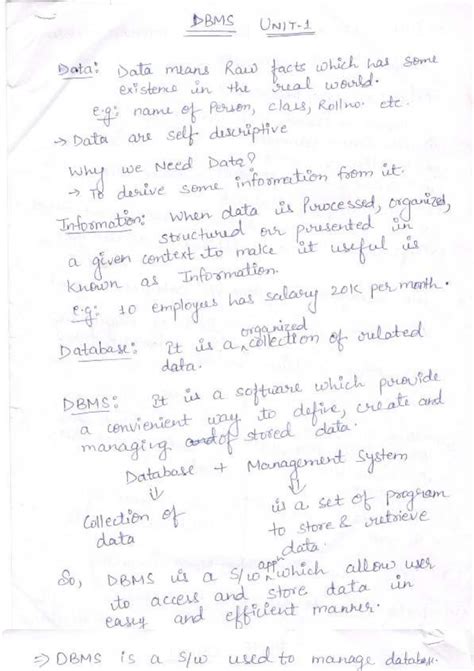 DBMS UNIT-1
Data: Data means Raw facts which has some
existence in the real world.
e.g: name of Person, class, Rollno. etc.
→ Data are self descriptive
Why we Need Data?
→ To derive some information from it.
Information: When data is Processed, organized,
structured or presented in
a given context to make it useful is
known as Information.
e.g: 10 employees has salary 20K per month.
Database: It is a organized collection of related
data.
DBMS: It is a software which provide
a convienient way to define, create and
managing of stored data.
Database + Management System
⇓ ⇓
Collection of data
is a set of program
to store & retrieve
data.
So, DBMS is a S/W appn which allow user
to access and store data in
easy and efficient manner.
⇒ DBMS is a S/W used to manage database.